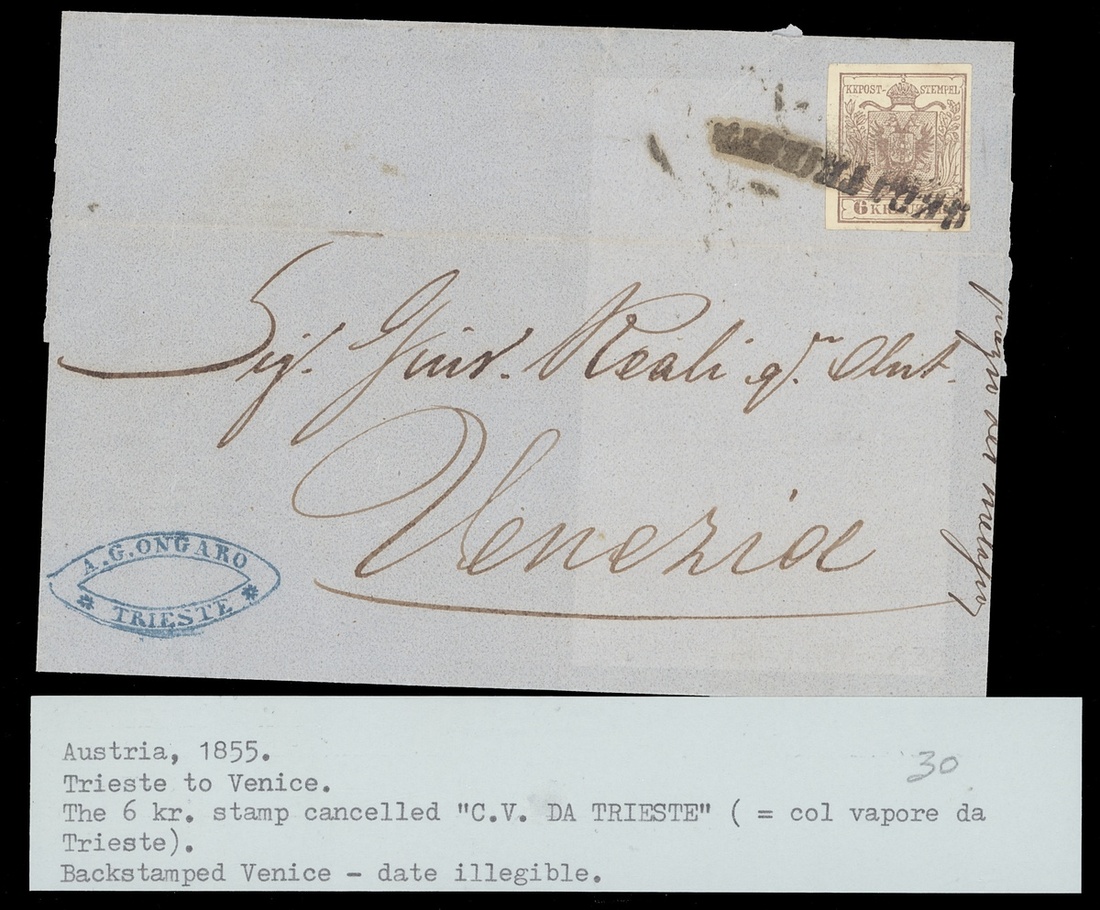 KKPOST-STEMPEL
6 KR
Sig. Gius. Reali q.m Ant.
Venezia
A.G. ONGARO
TRIESTE
Austria, 1855.
30
Trieste to Venice.
The 6 kr. stamp cancelled "C.V. DA TRIESTE" ( = col vapore da
Trieste).
Backstamped Venice - date illegible.